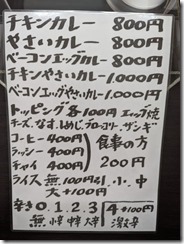 チキンカレー 800円
やさいカレー 800円
ベーコンエッグカレー 800円
チキンやさいカレー 1,000円
ベーコンエッグやさいカレー 1,000円
トッピング 各100円 エッグ焼
チーズ、なす、しめじ、ブロッコリー、ザンギ
コーヒー 400円
ラッシー 400円
チャイ 400円
食事の方
200円
ライス 無100円引 小、中
大+100円
辛さ 0.1.2.3
無 小辛 中辛 大辛
4+100円
激辛